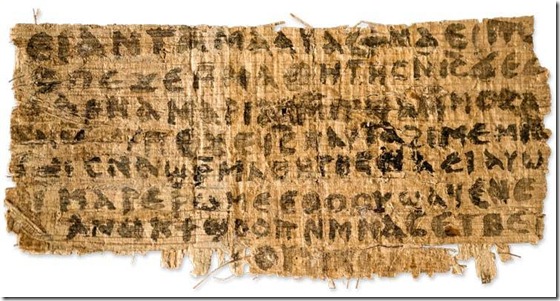 ⲉⲓ ⲁⲛ ⲧⲁⲙⲁⲁⲩ ⲁⲥϯ ⲛⲁⲉⲓ
ⲡⲉϫⲉ ⲙⲙⲁⲑⲏⲧⲏⲥ ⲛⲓⲥ ϫⲉ ⲥ
ⲁⲣⲛⲁ ⲙⲁⲣⲓⲁⲙ ⲙⲡϣⲁ ⲙⲙⲟⲥ ⲁ
ⲡⲉϫⲉ ⲓⲥ ⲛⲁⲩ ⲧⲁϩⲓⲙⲉ ⲙⲛ
ⲥⲛⲁϣⲣⲙⲁⲑⲏⲧⲏⲥ ⲛⲁⲉⲓ ⲁⲩⲱ
ⲙⲁⲣⲉⲣⲱⲙⲉ ⲉⲑⲟⲟⲩ ϣⲁϥⲉ ⲛⲉ
ⲁⲛⲟⲕ ϯϣⲟⲟⲡ ⲛⲙⲙⲁⲥ ⲉⲧⲃⲉ